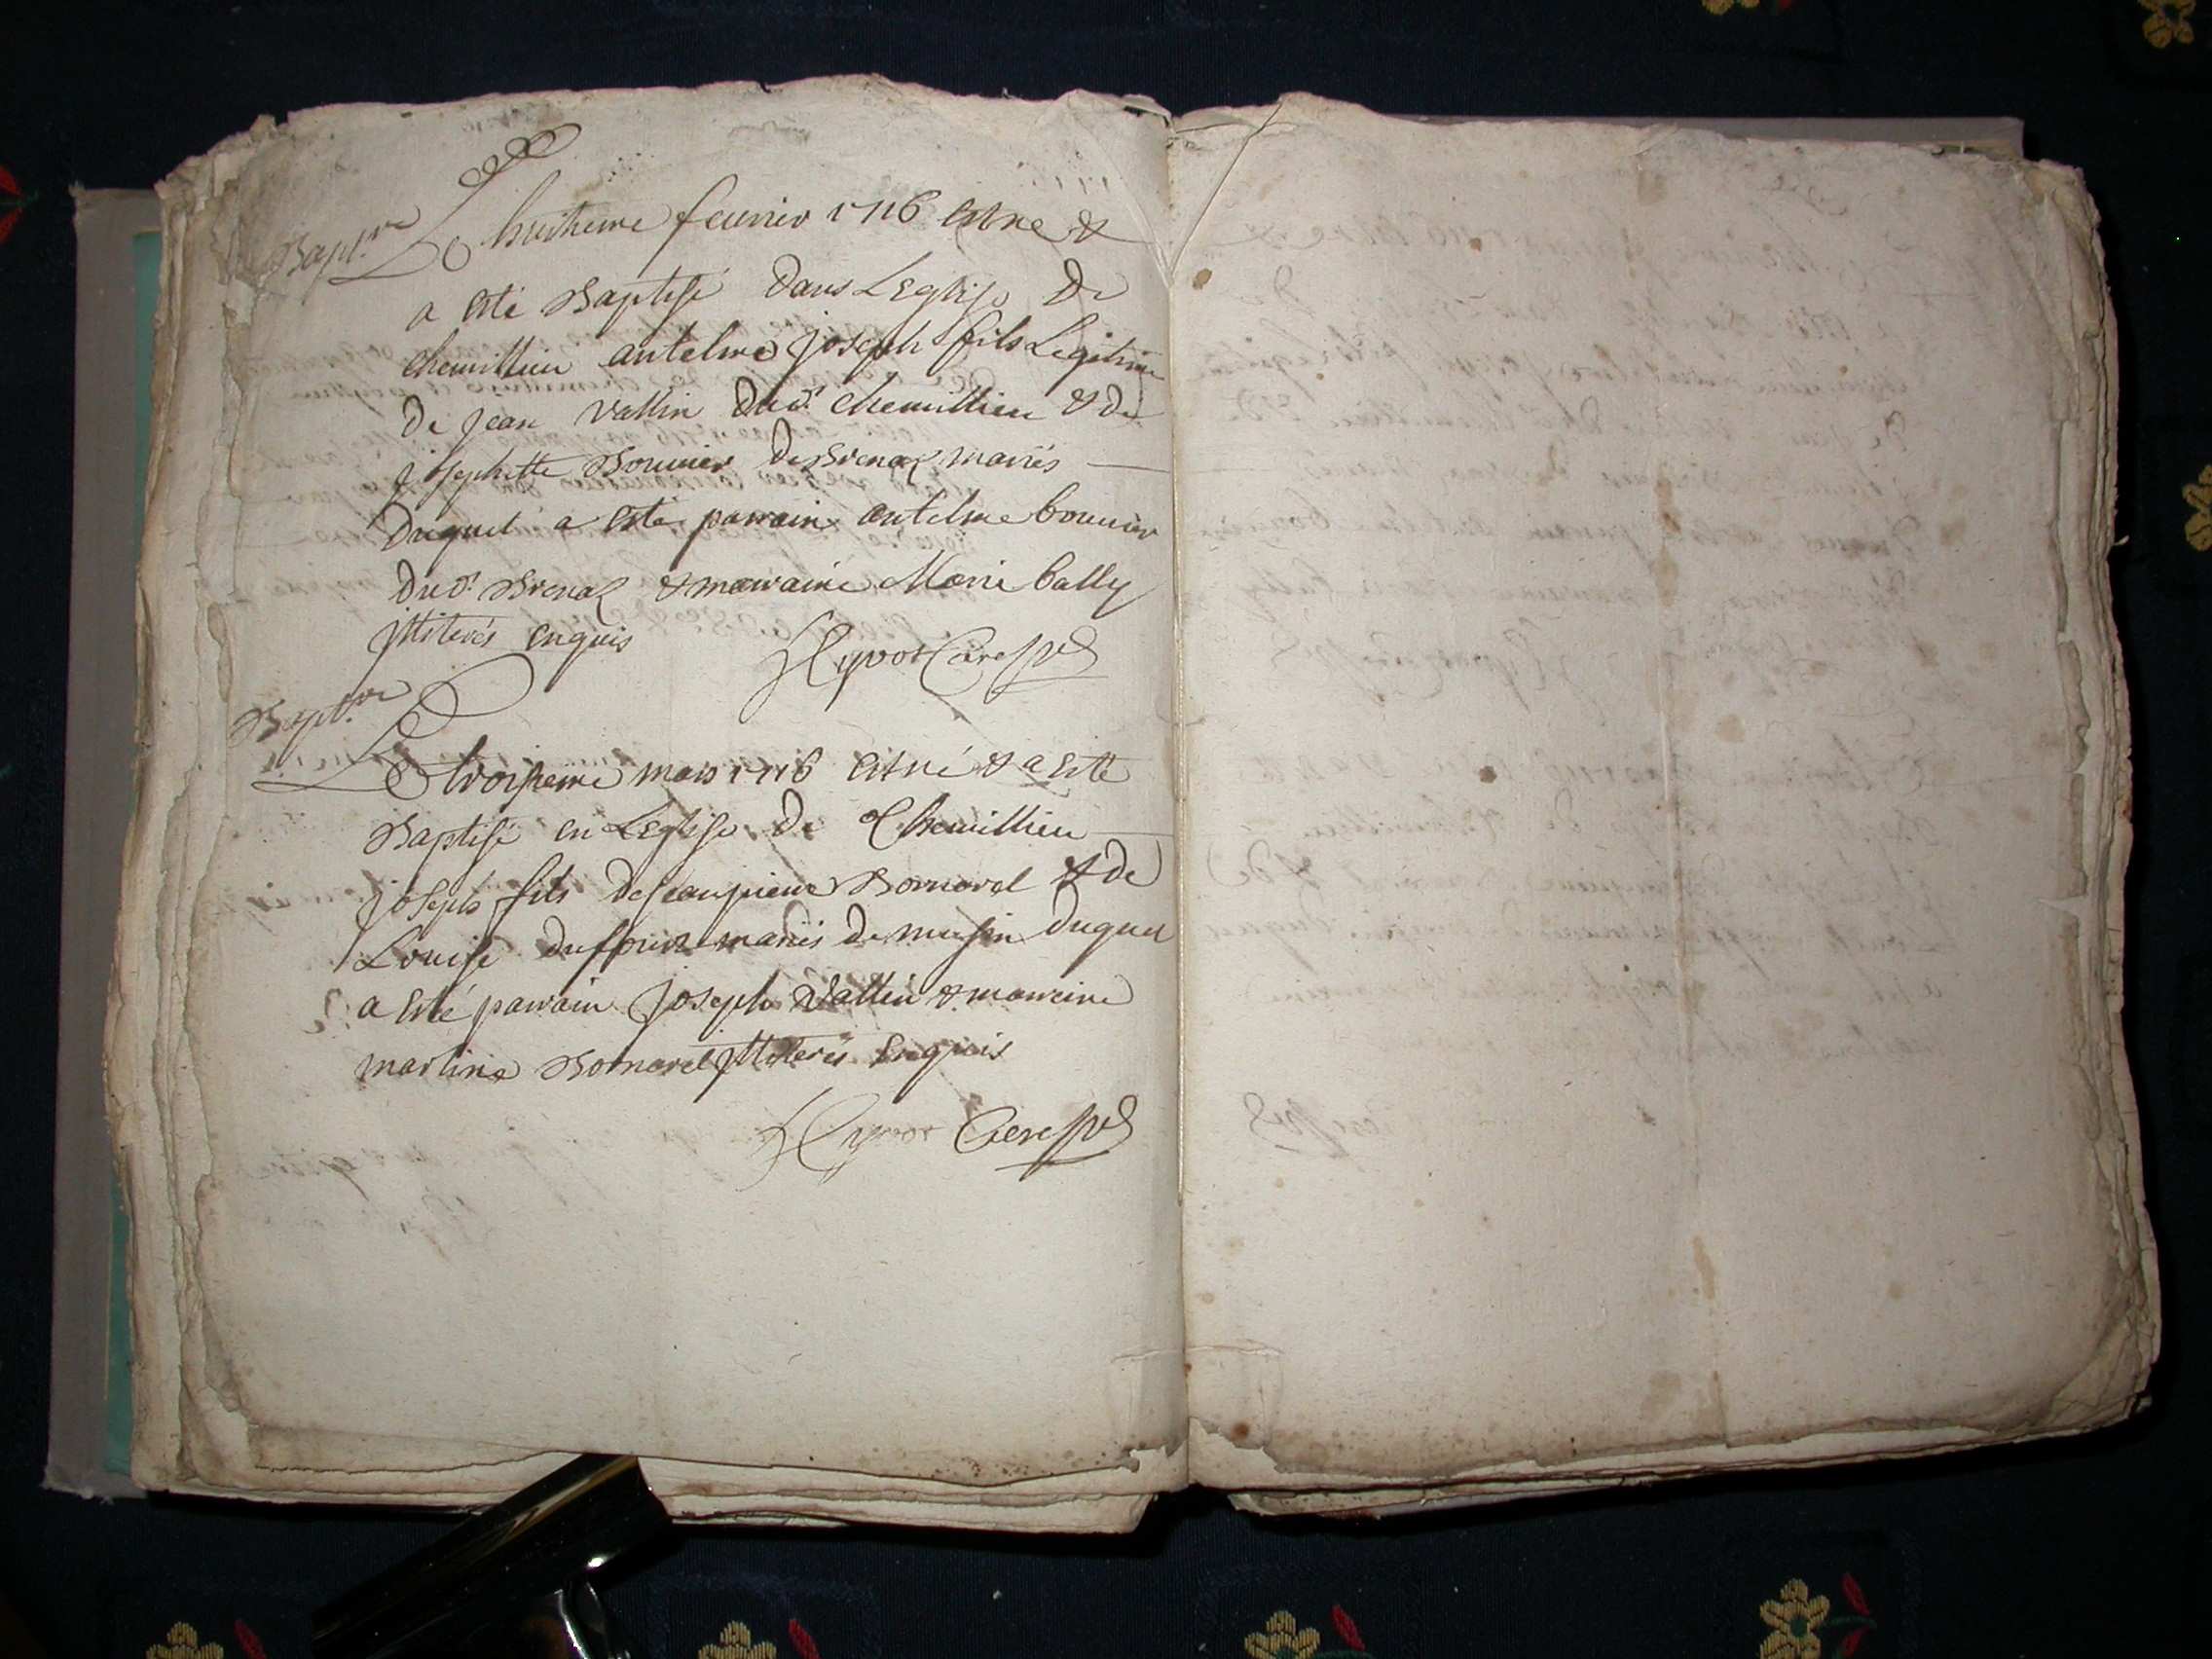 Bapt.me
Le huitieme feurier 1716 est ne &
a esté Baptisé dans L'Eglise de
chemillieu antelme joseph fils Legitime
de jean Vallin dud.t chemillieu & de
josephette Bonnier de Brenaz mariés
duquel a esté parrain antelme bonnier
dud.t Brenaz & marraine Marie bally
jlliterés enquis
Hyvot Curé
Bapt.me
Le troisieme mars 1716 est né & a esté
Baptisé en L'Eglise de Chemillieu
joseph fils de jeanpierre Bornarel & de
Louise dufour mariés de musin duquel
a esté parrain joseph Vallin & marreine
martine Bornarel jlliterés enquis
Hyvot Curé